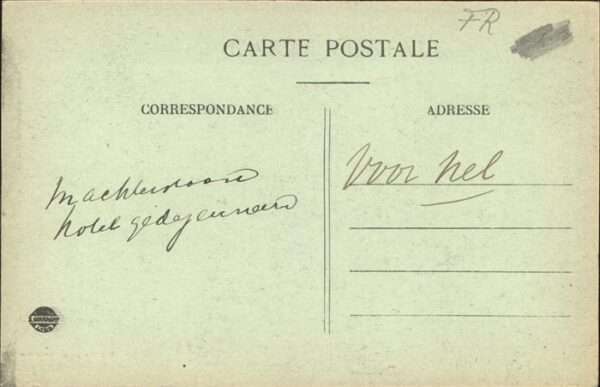 FR
CARTE POSTALE
CORRESPONDANCE
ADRESSE
In achterstaand
hotel gedejeuneerd
Voor Nel